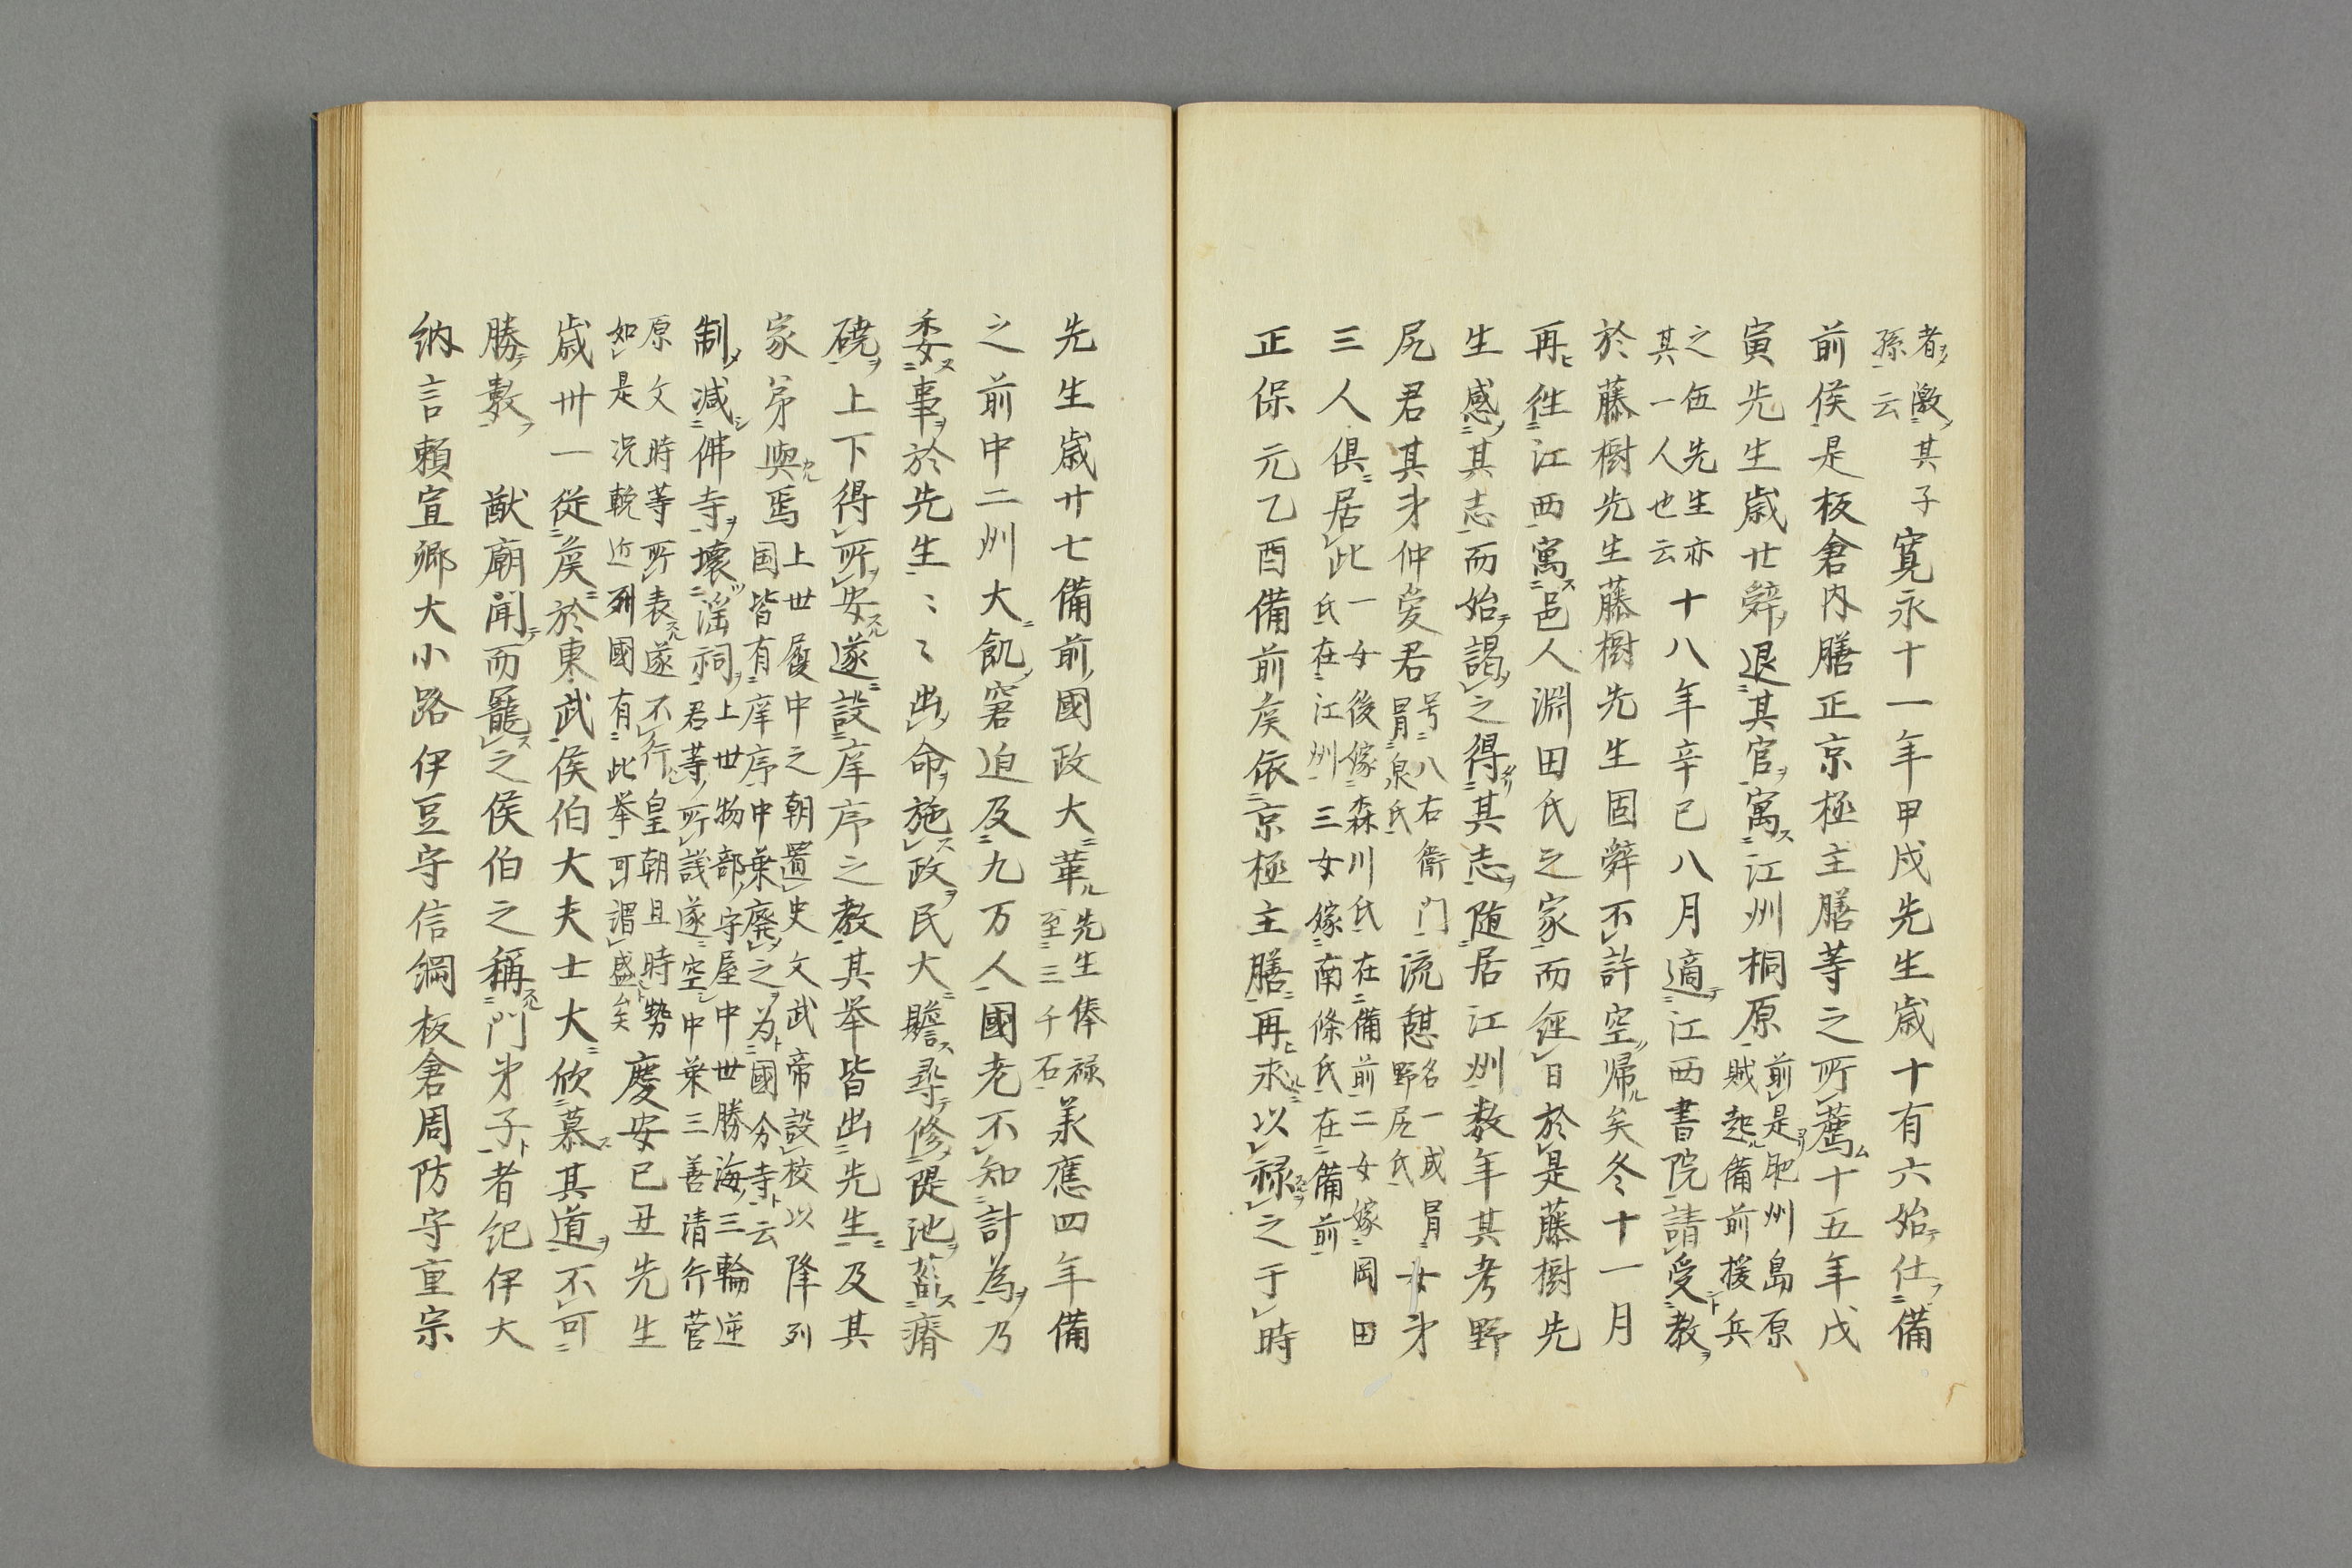 者激其子孫云寛永十一年甲戌先生歳十有六始仕備
前侯是板倉内膳正京極主膳等之所薦十五年戊
寅先生歳廿辤退其官寓江州桐原前是肥州島原賊起備前援兵
之伍先生亦其一人也云十八年辛巳八月適江西書院請受教
於藤樹先生藤樹先生固辤不許空帰矣冬十一月
再徃江西寓邑人淵田氏之家而経日於是藤樹先
生感其志而始謁之得其志随居江州数年其考野
尻君其才仲愛君号八右衛門冒泉氏流憩名一成冒野尻氏女才
三人俱居此一女後嫁森川氏在備前二女嫁岡田氏在江州三女嫁南條氏在備前
正保元乙酉備前矦依京極主膳再求以禄之于時
先生歳廿七備前國政大革先生俸禄至三千石羕應四年備
之前中二州大飢窘迫及九万人國老不知計為乃
委事於先生〻〻出命施政民大贍尋修隄池苔瘠
磽上下得所安遂設庠序之教其举皆出先生及其
家弟與焉上世履中之朝置史文武帝設校以降列国皆有庠序中葉廃之为國分寺云
制减佛寺壊滛祠上世物部守屋中世勝海三輪逆君等所議遂空中葉三善清行菅
原文時等所表遂不行皇朝且時勢如是况輓近列國有此举可謂盛矣慶安己丑先生
歳卅一從矦於東武侯伯大夫士大欣慕其道不可
勝數　猷廟聞而寵之侯伯之稱門才子者紀伊大
納言賴宣卿大小路伊豆守信綱板倉周防守重宗